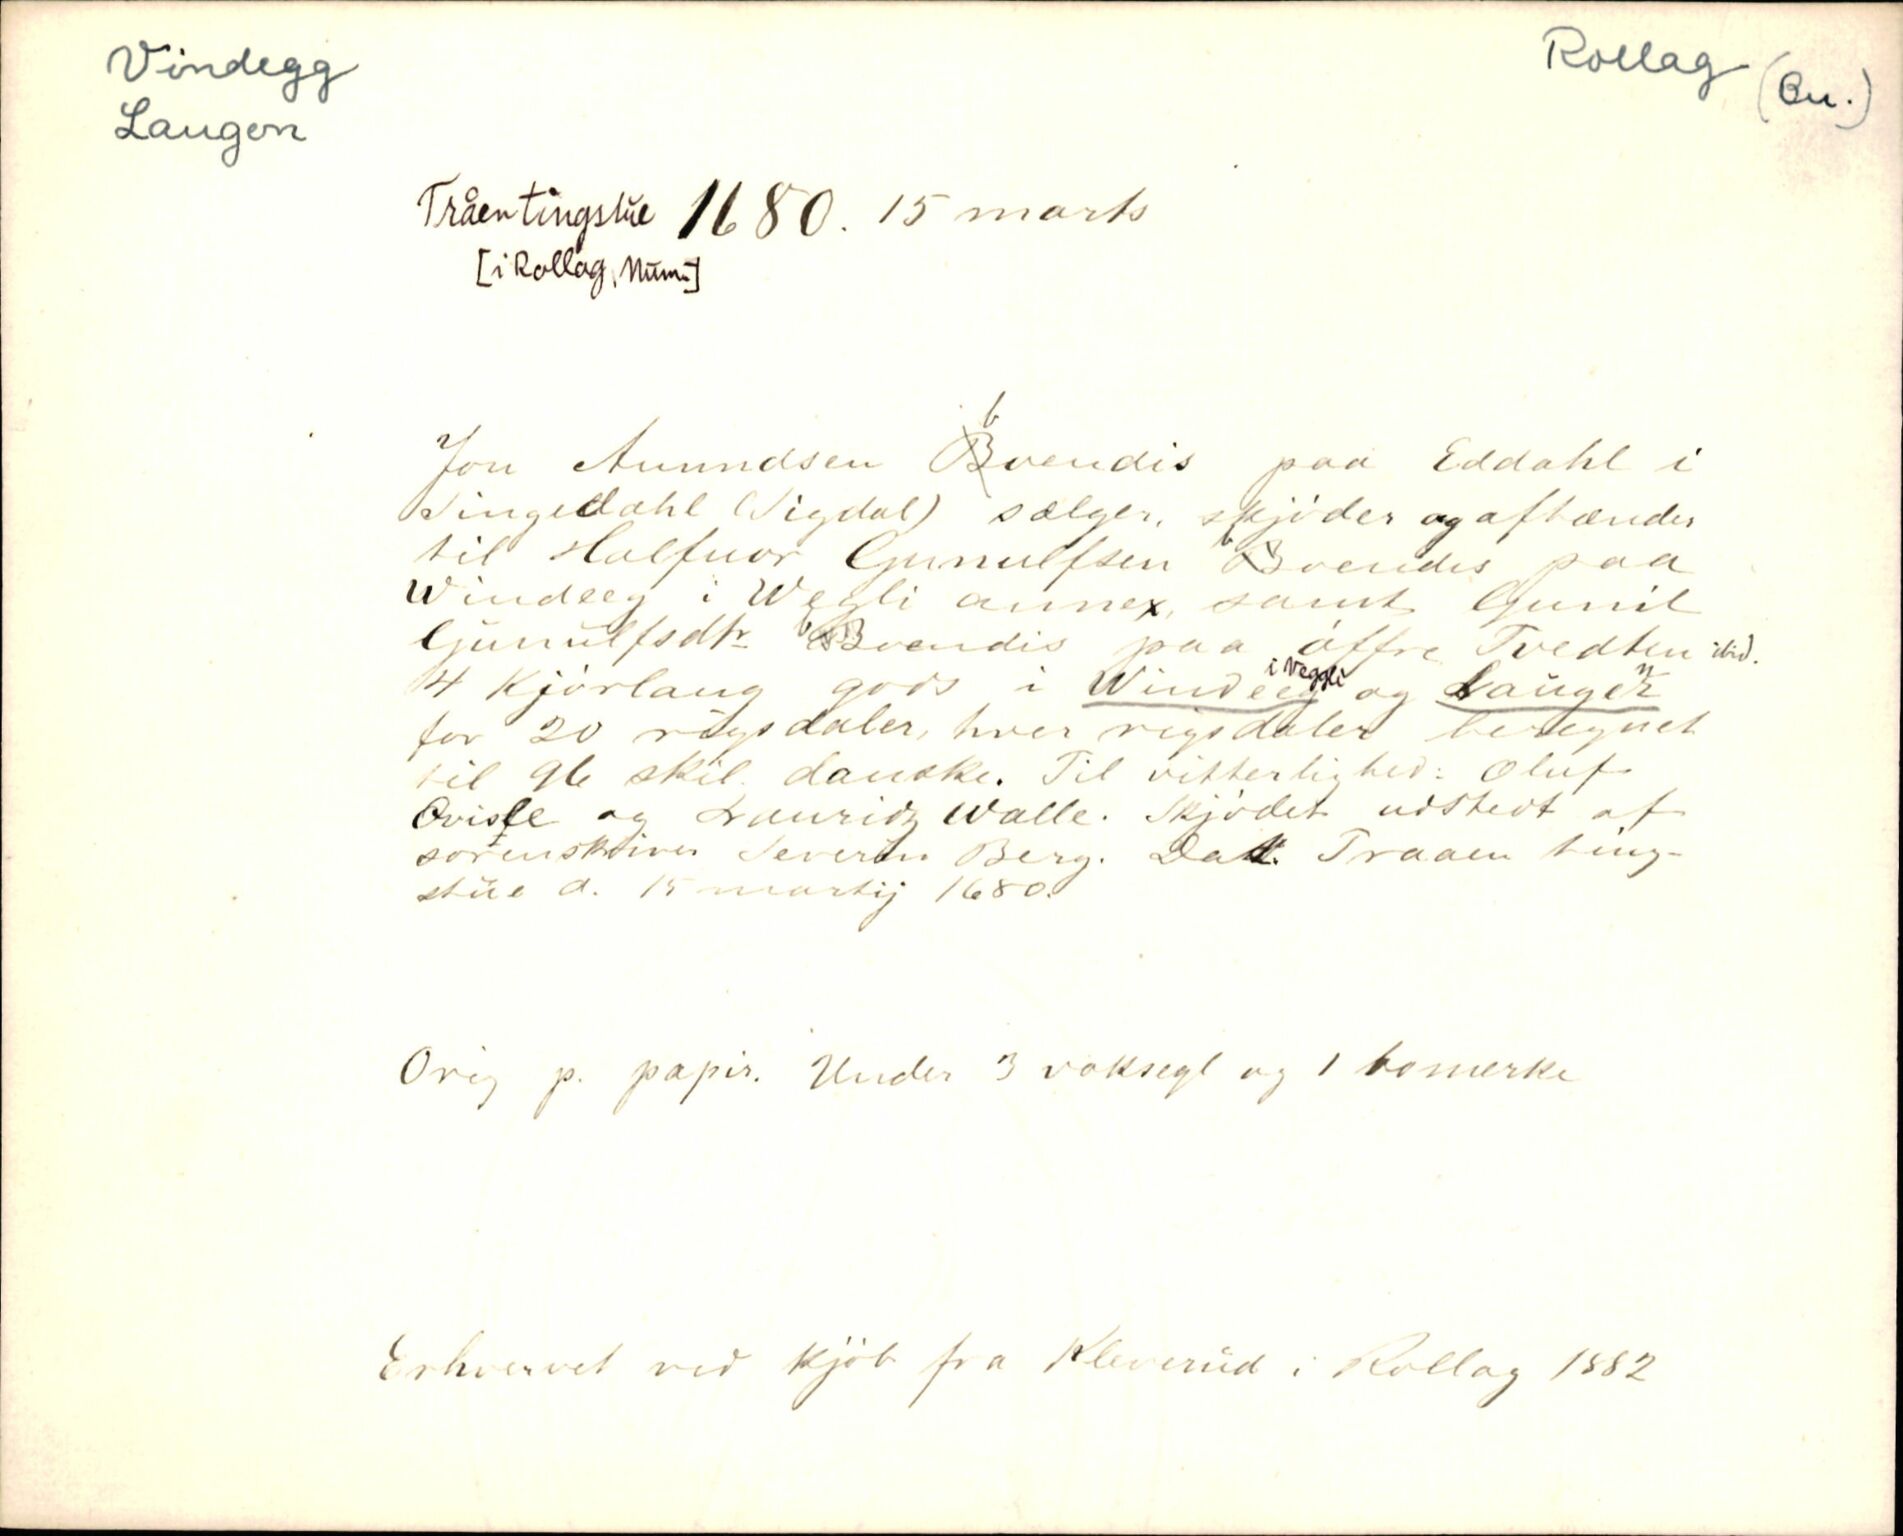 Vindegg
Laugen
Rollag (Bu.)
Tråen tingstue 1680. 15 marts
[i Rollag, Num.]
Jon Amundsen boendis paa Eddahl i
Singedahl (Sigdal) sælger, skjöder og afhænder
til Halfuor Gunulfsen boendis paa
Windeeg i Wegli annex, samt Gunil
Gunulfsdtr boendis paa öffre Tvedten ibid.
4 Kjörlaug gods i Windeeg i Veggli og Laugen
for 20 rigsdaler, hver rigsdaler beregnet
til 96 skil. danske. Til vitterlighed: Oluf
Oviste og Lauridz Walle. Skjödet udstedt af
sorenskriver Severin Berg. Dat. Traaen ting-
stue d. 15 martij 1680.
Orig p. papir. Under 3 voksegl og 1 bomerke
Erhvervet ved kjöb fra Kleverud i Rollag 1882